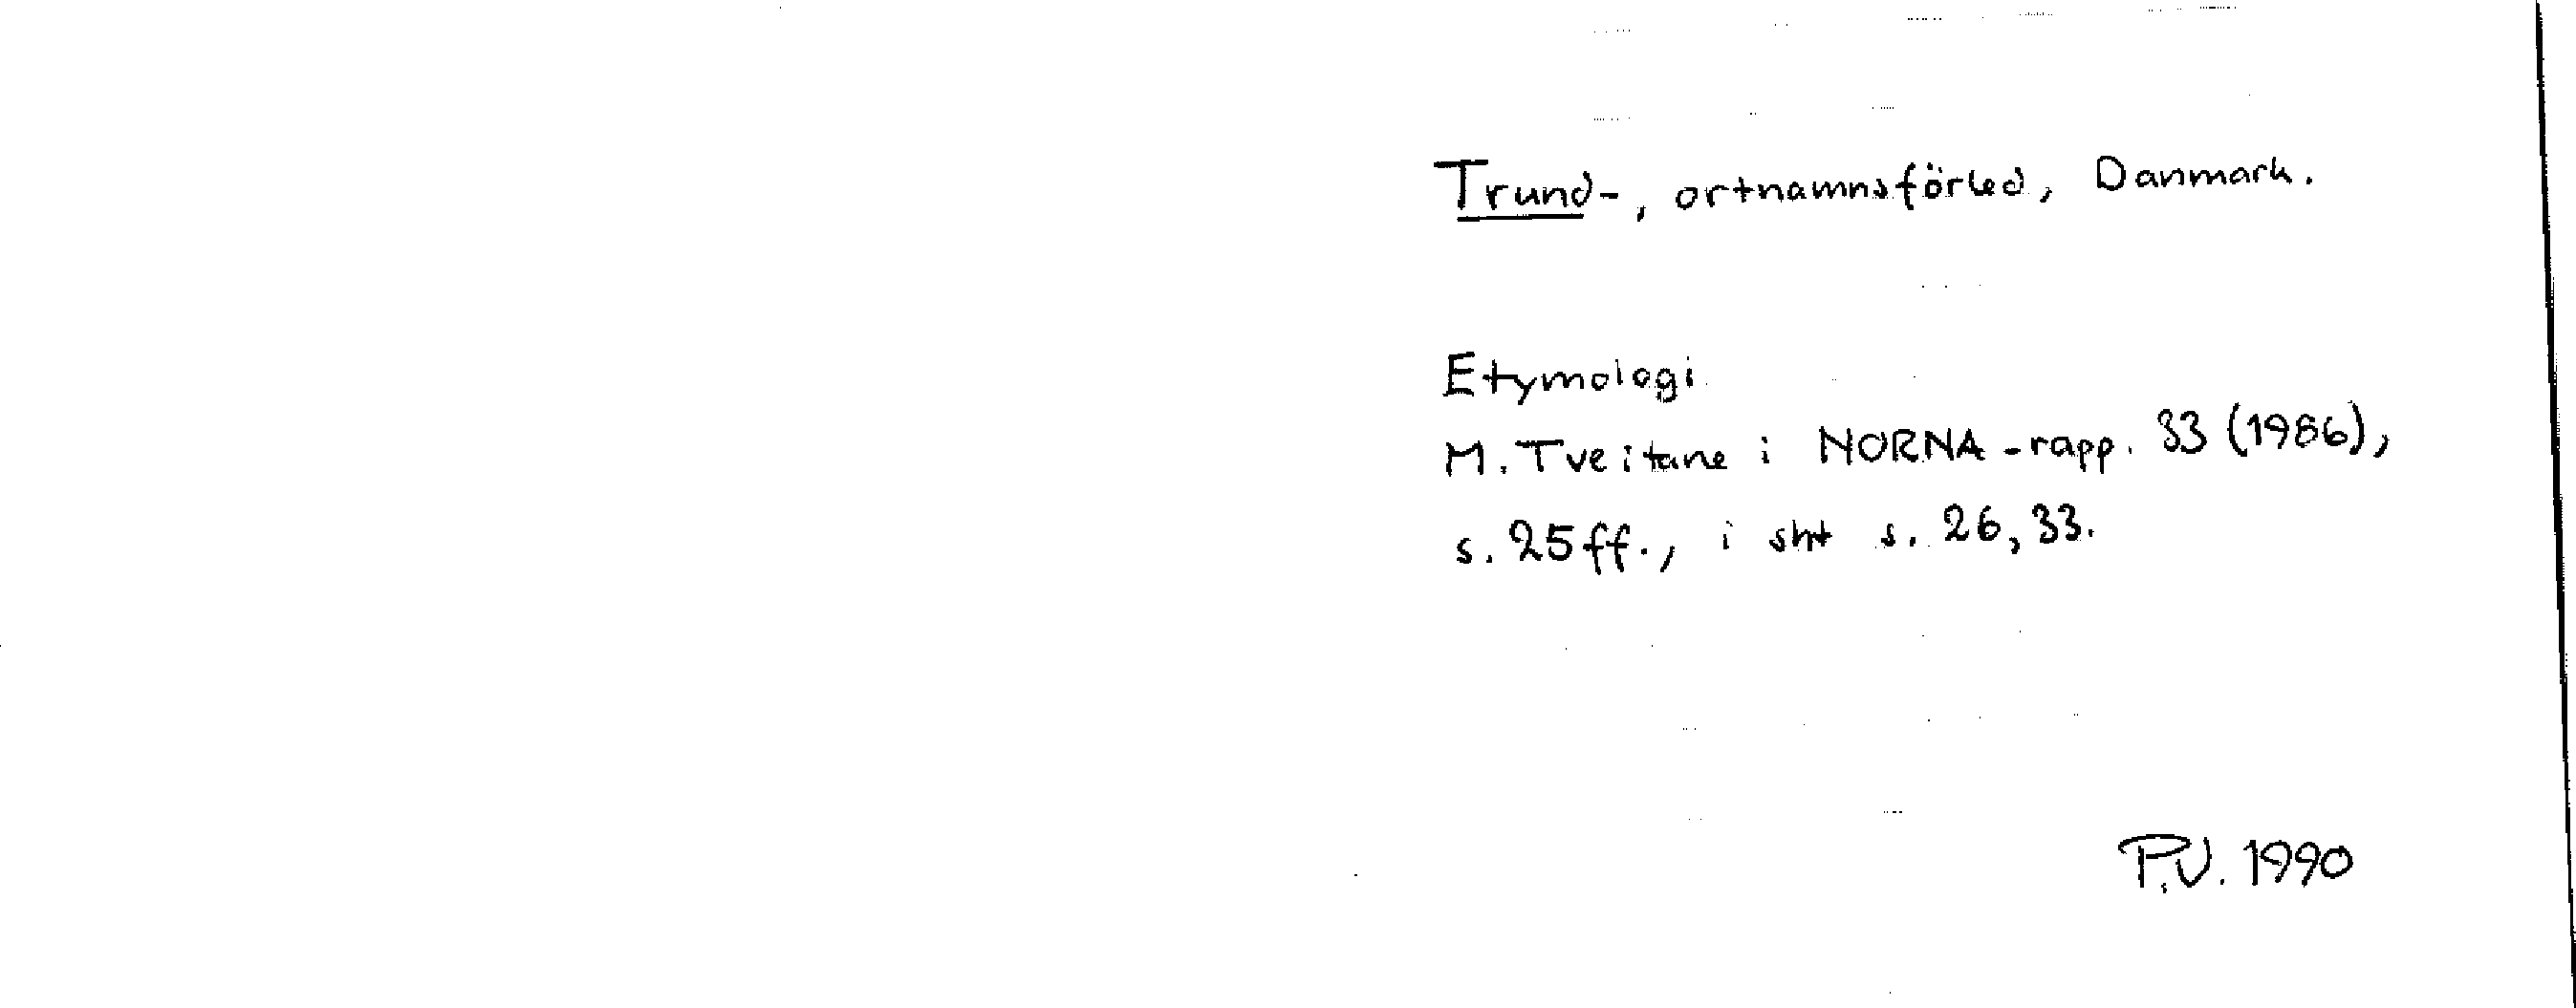 Trund-, ortnamnsförled, Danmark.
Etymologi
M. Tveitane i NORNA-rapp. 33 (1986),
s. 25ff., i sht s. 26, 33.
P.V. 1990